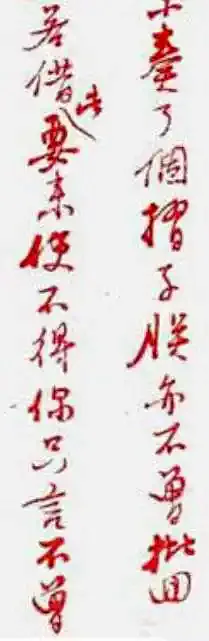 奏了個摺子朕亦不曾批回
若借此要来使不得你只言不曾